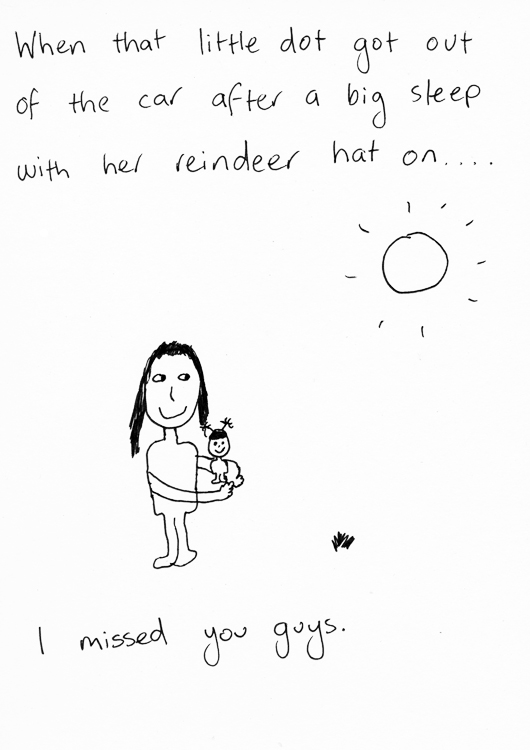 When that little dot got out
of the car after a big sleep
with her reindeer hat on....
I missed you guys.